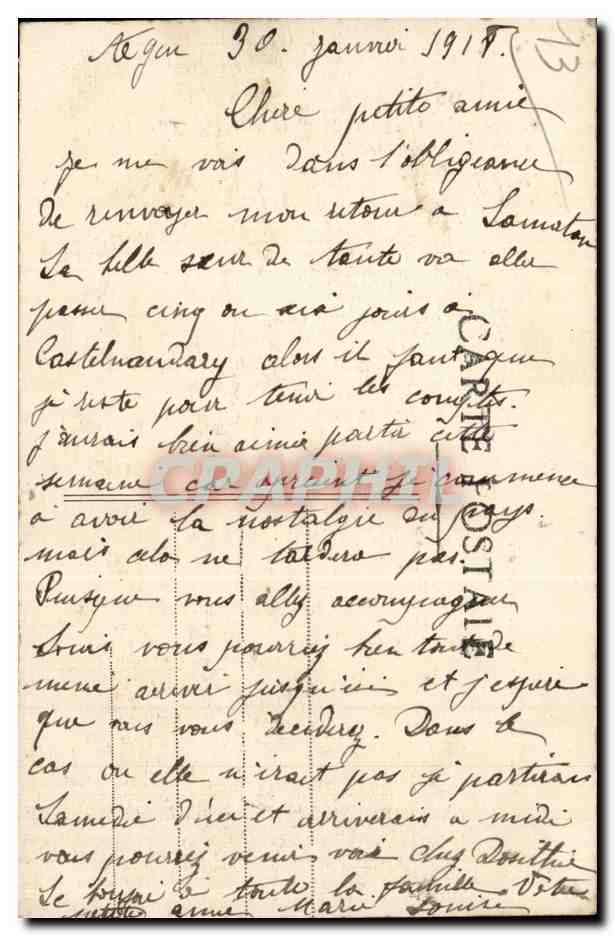 Agen 30. Janvier 1918.
13
Chère petite amie
Je me vois dans l'obligeance
de renvoyer mon retour a
La belle sœur de tante va aller
passer cinq ou six jours à
Castelnaudary alors il faut que
je reste pour tenir les comptes.
J'aurais bien aimée partir cette
semaine car apresent je commence
a avoir la nostalgie du pays.
mais cela ne tardera pas.
Puisque vous allez accompagner
Louis vous pourriez bien tout de
meme arriver jusqu'ici et j'espère
que vous vous deciderez. Dans le
cas ou elle n'irait pas je partirais
Samedi d'ici et arriverais a midi
vous pourriez venir voir chez
Le bonjour à toute la famille Votre
petite amie Marie Louise
CARTE POSTALE
CPAPHIL